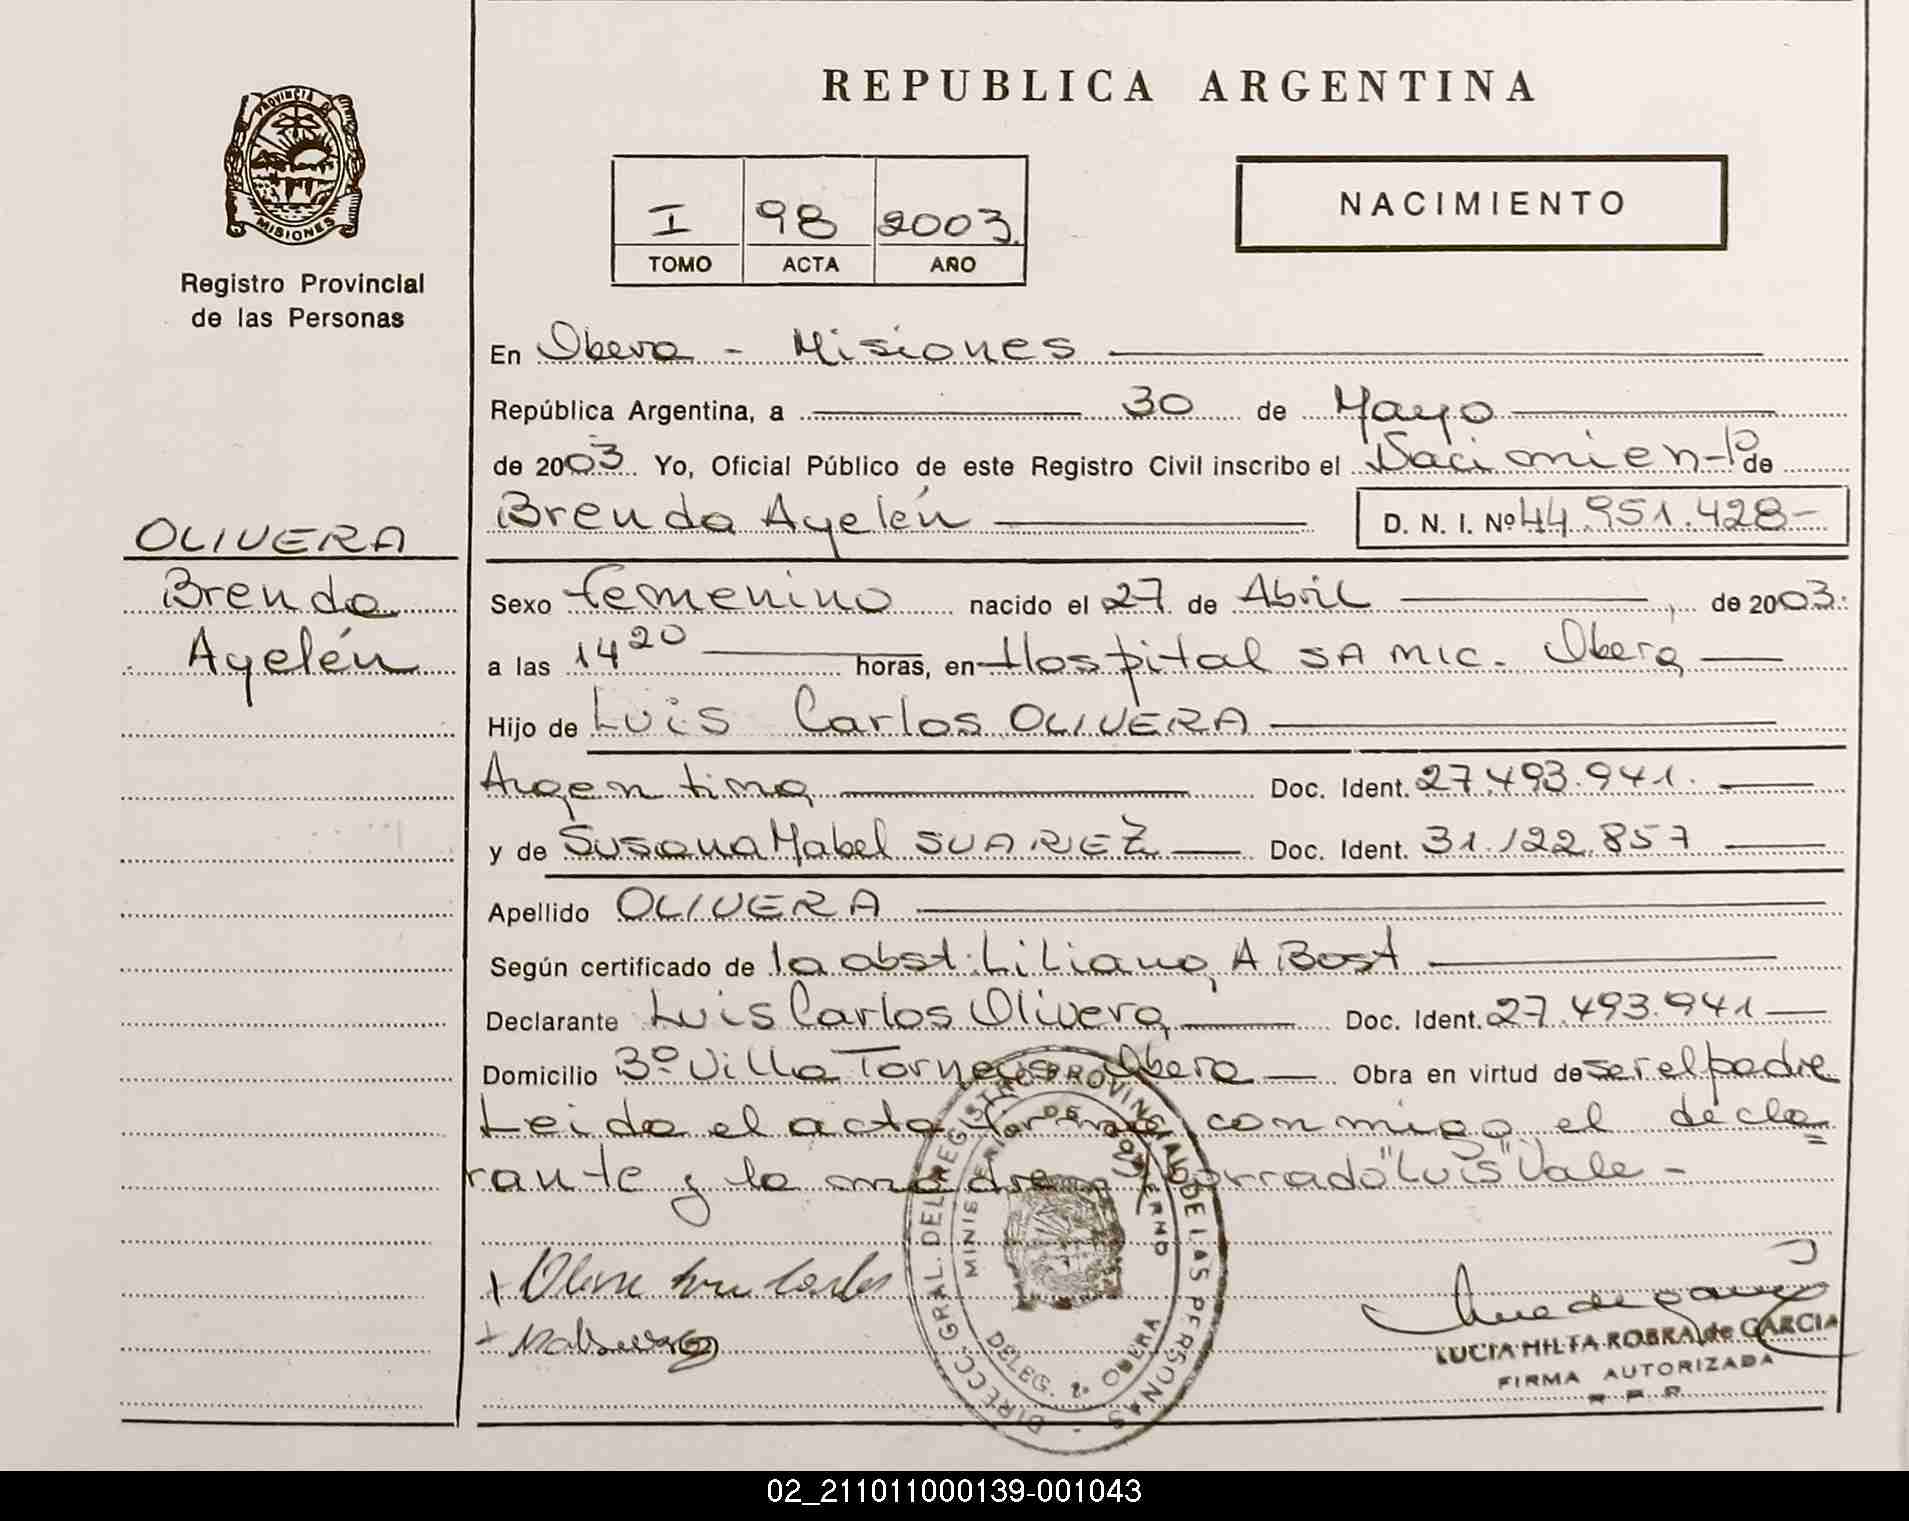 REPUBLICA ARGENTINA
PROVINCIA DE
MISIONES
Registro Provincial
de las Personas
I 98 2003.
TOMO ACTA AÑO
NACIMIENTO
En Obera - Misiones
República Argentina, a 30 de Mayo
de 2003 Yo, Oficial Público de este Registro Civil inscribo el Nacimiento de
Brenda Ayelén D. N. I. Nº 44.951.428-
OLIVERA
Brenda
Ayelén
Sexo femenino nacido el 27 de Abril, de 2003.
a las 14 20 horas, en Hospital SAMIC. Oberá
Hijo de Luis Carlos OLIVERA
Argentina Doc. Ident. 27.493.941.
y de Susana Mabel SUAREZ Doc. Ident. 31.122.857
Apellido OLIVERA
Según certificado de la obst: Liliana A Bost
Declarante Luis Carlos Olivera Doc. Ident. 27.493.941
Domicilio 3º Villa Torneus Obera Obra en virtud de ser el padre
Leida el acta firman conmigo el decla=
rante y la madre S/borrado "Luis" Vale -
DIRECC. GRAL. DEL REGISTRO PROVINCIAL DE LAS PERSONAS
MINISTERIO DE GOBIERNO
DELEG. OBERA
LUCIA HILTA ROBRA de GARCIA
FIRMA AUTORIZADA
R. P. P.
02_211011000139-001043